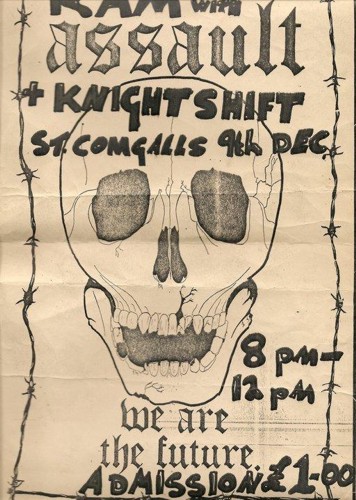 RAM with
assault
+ KNIGHTSHIFT
ST. COMGALLS 9th DEC.
8 pm-
12 pm
we are
the future.
ADMISSION: £1-00